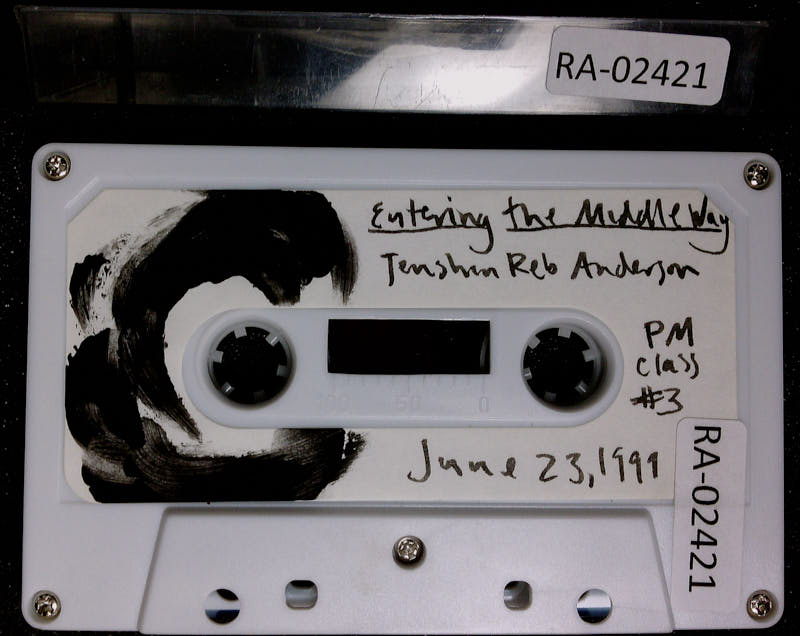 RA-02421
Entering the Middle Way
Tenshin Reb Anderson
PM
class
#3
June 23, 1999
RA-02421
100 50 0